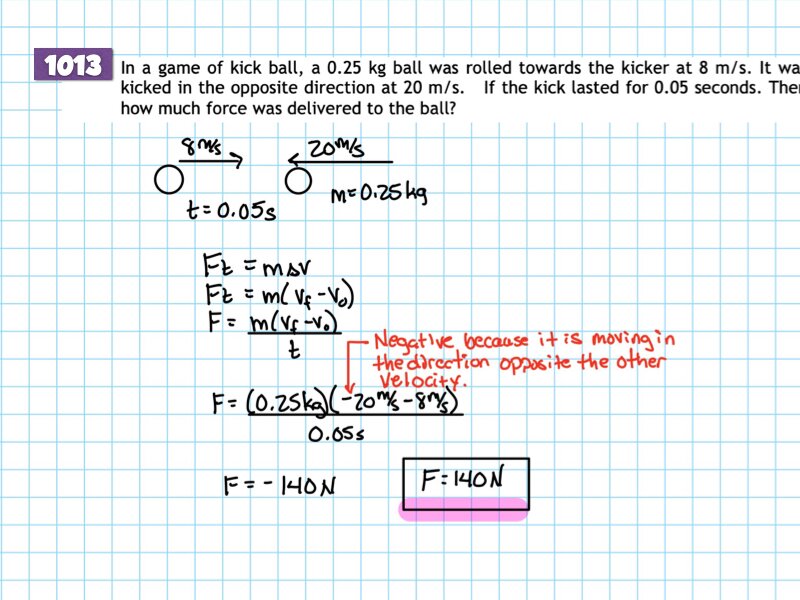 1013
In a game of kick ball, a 0.25 kg ball was rolled towards the kicker at 8 m/s. It wa
kicked in the opposite direction at 20 m/s. If the kick lasted for 0.05 seconds. The
how much force was delivered to the ball?
8 m/s 20 m/s
m=0.25kg
t=0.05s
Ft = mΔv
Ft = m(vf - v₀)
F = m(vf - v₀)
t
Negative because it is moving in
the direction opposite the other
velocity.
F = (0.25kg)(-20 m/s - 8 m/s)
0.05s
F = - 140 N
F = 140 N